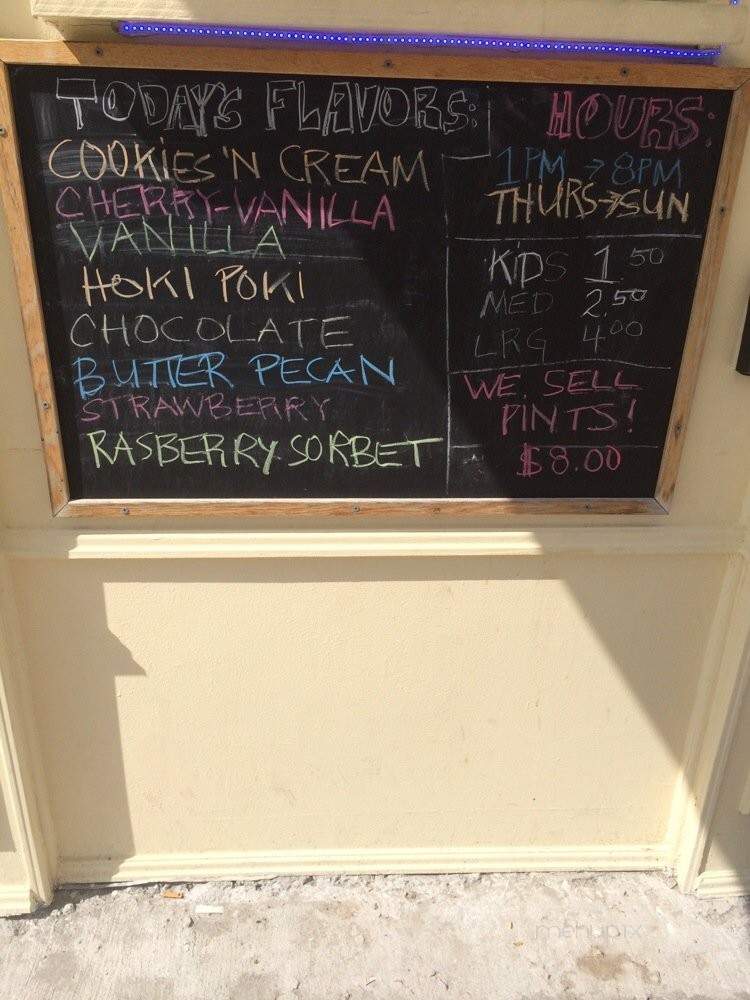 TODAY'S FLAVORS:
COOKIES 'N CREAM
CHERRY-VANILLA
VANILLA
HOKI POKI
CHOCOLATE
BUTTER PECAN
STRAWBERRY
RASBERRY SORBET
HOURS:
1PM → 8PM
THURS→SUN
KIDS 1.50
MED 2.50
LRG 4.00
WE SELL
PINTS!
$8.00
menupix